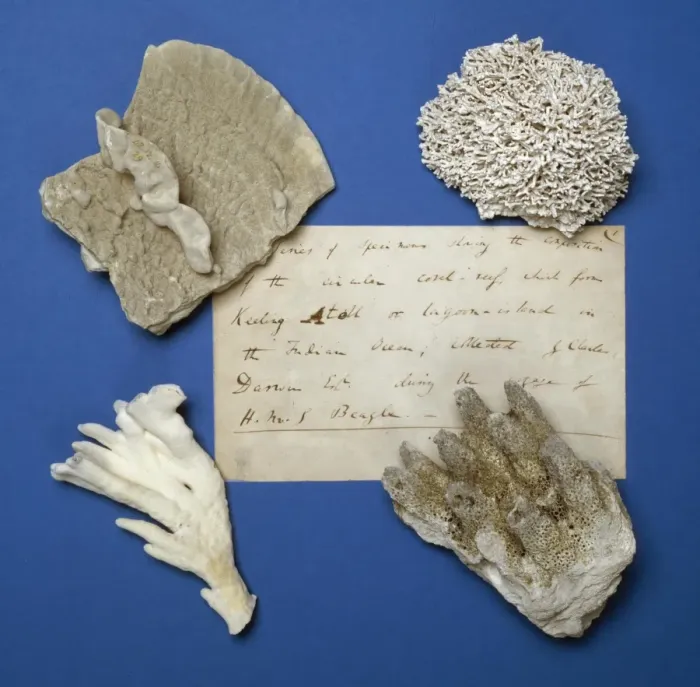 Series of Specimens shewing the composition
of the circular coral-reef, which form
Keeling Atoll or lagoon-island in
the Indian Ocean; collected by Charles
Darwin Esqr. during the voyage of
H.M.S Beagle. —